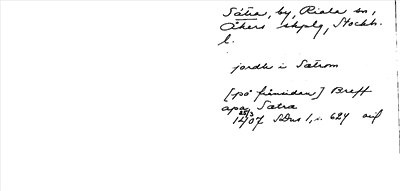 Sätra, by, Riala sn,
Åkers skplg, Stockh.
l.
jordh i Sætrom
[på framsidan] Breff
apa Sætra
25/3
1407 SDns 1, s. 624 avf